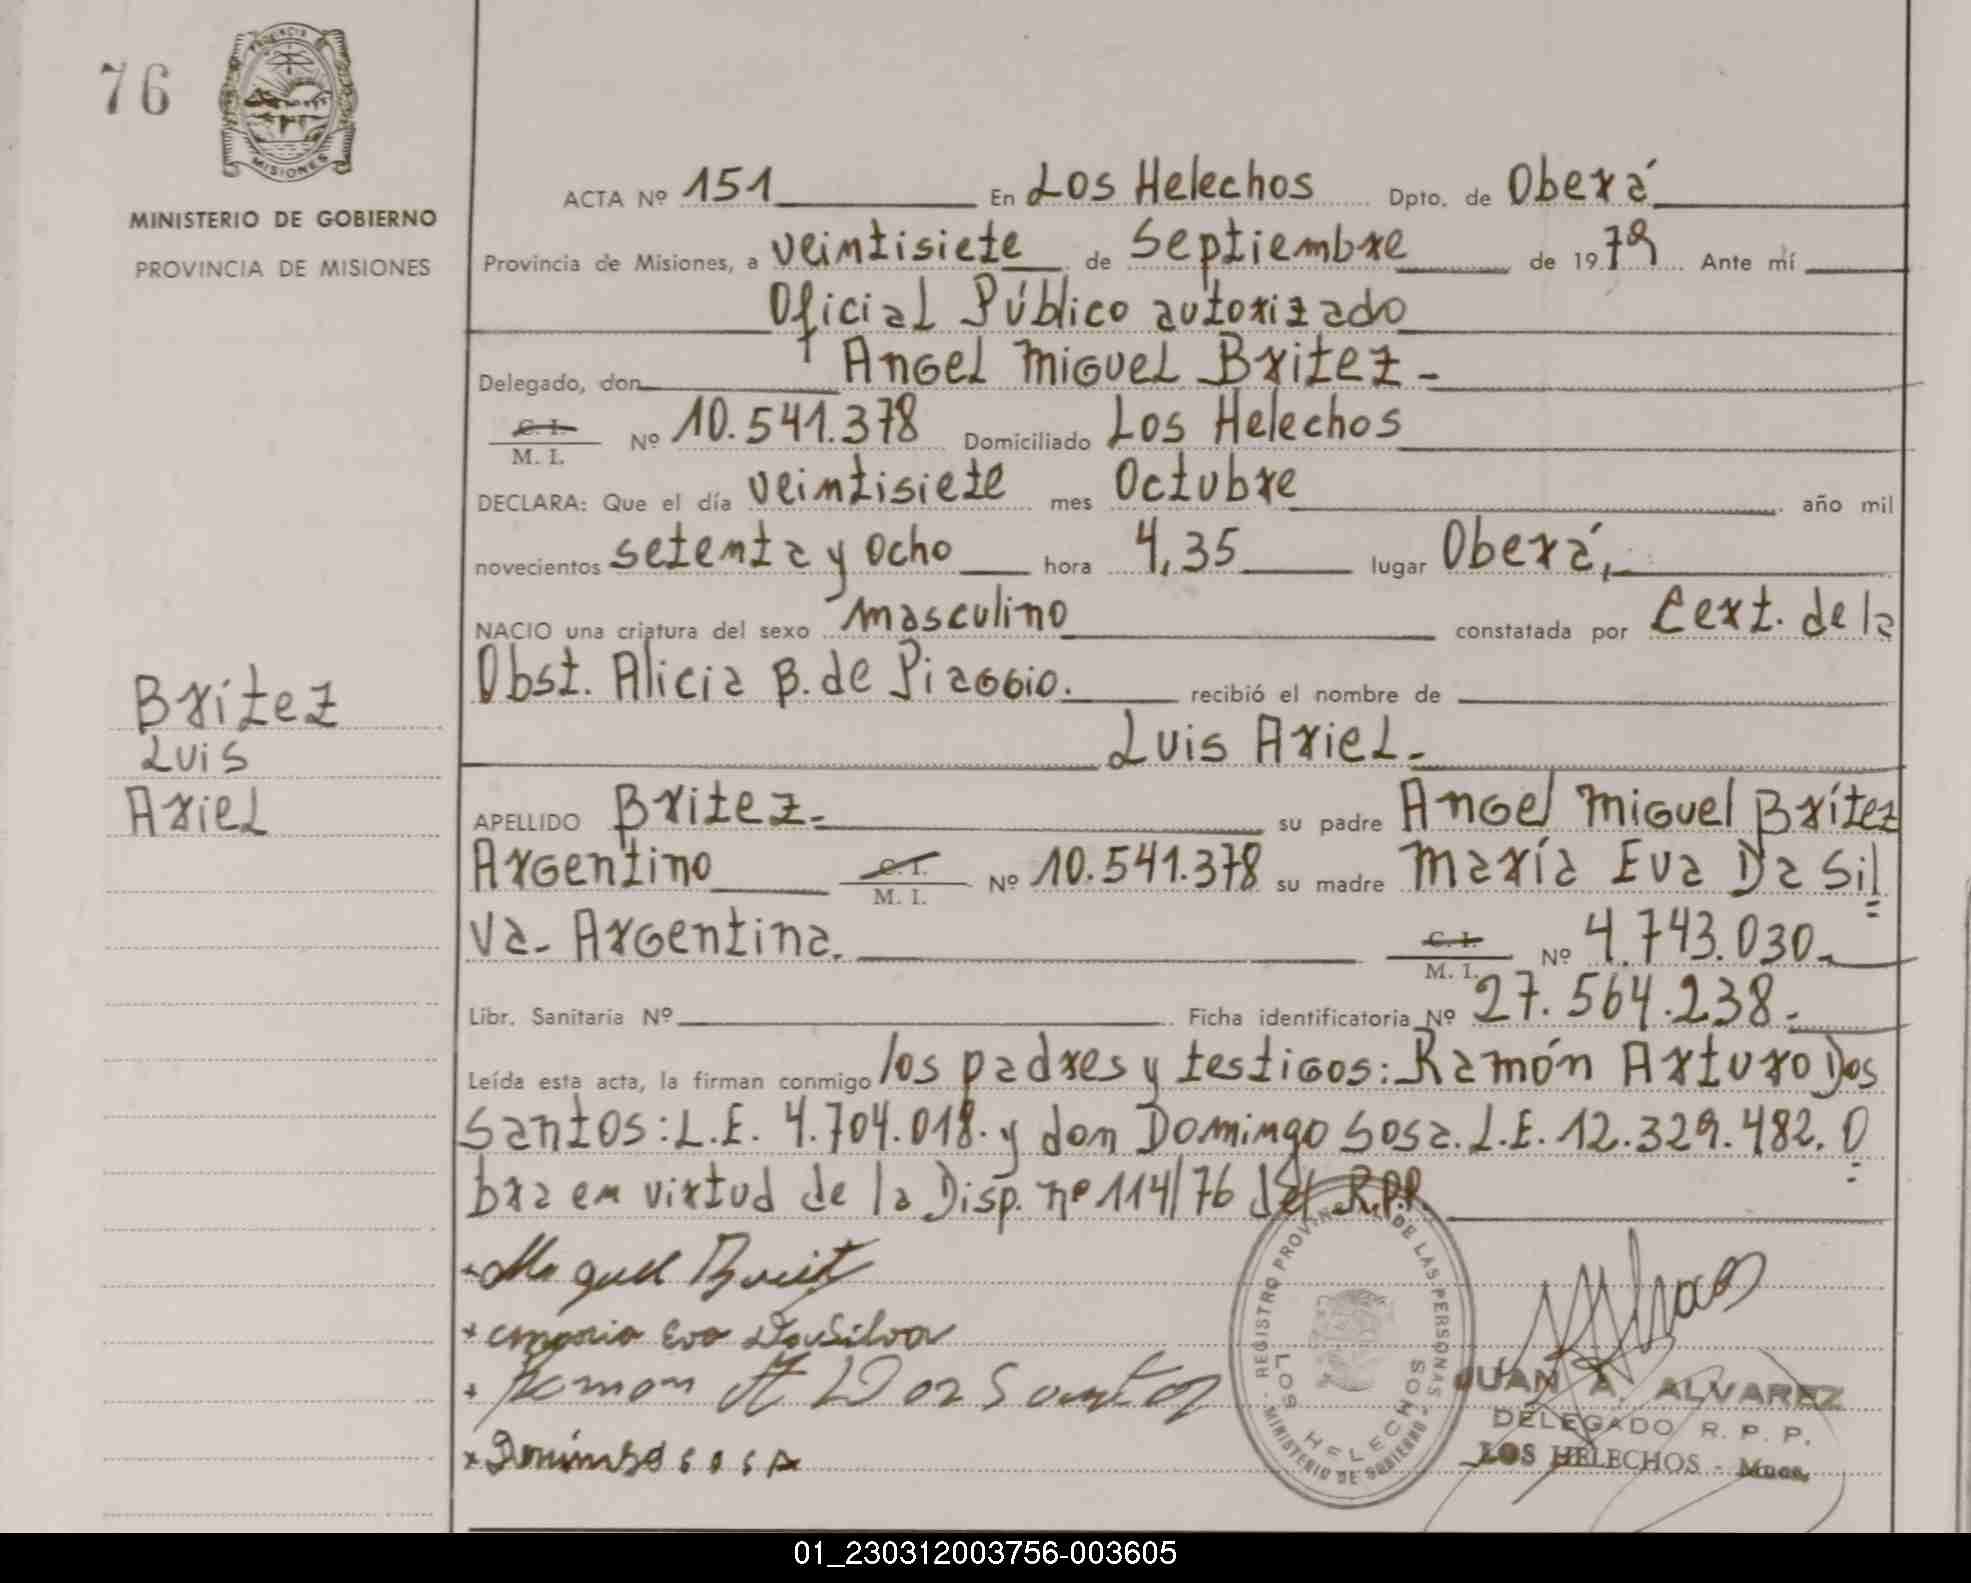 76
PROVINCIA
MISIONES
MINISTERIO DE GOBIERNO
PROVINCIA DE MISIONES
ACTA Nº 151 En Los Helechos Dpto. de Oberá
Provincia de Misiones, a veintisiete de Septiembre de 1979 Ante mí
Oficial Público autorizado
Delegado, don Angel Miguel Britez-
C. I.
M. I. Nº 10.541.378 Domiciliado Los Helechos
DECLARA: Que el día veintisiete mes Octubre año mil
novecientos setenta y ocho hora 4,35 lugar Oberá,
NACIO una criatura del sexo masculino constatada por Cert. de la
Obst. Alicia B. de Piaggio. recibió el nombre de
Luis Ariel-
Britez
Luis
Ariel
APELLIDO Britez- su padre Angel Miguel Brítez
Argentino C. I.
M. I. Nº 10.541.378 su madre María Eva Da Sil
va- Argentina. C. I.
M. I. Nº 4.743.030-
Libr. Sanitaria Nº Ficha identificatoria Nº 27.564.238-
Leída esta acta, la firman conmigo los padres y testigos: Ramón Arturo Dos
Santos: L.E. 4.704.018. y don Domingo Sosa. L.E. 12.329.482. O
bra en virtud de la Disp. nº 114/76 del R.P.P.
Eva Da Silva
Ramon A Dos Santos
sosa
REGISTRO PROVINCIAL DE LAS PERSONAS
LOS HELECHOS
MINISTERIO DE GOBIERNO
JUAN A. ALVAREZ
DELEGADO R. P. P.
LOS HELECHOS - Mnes.
01_230312003756-003605